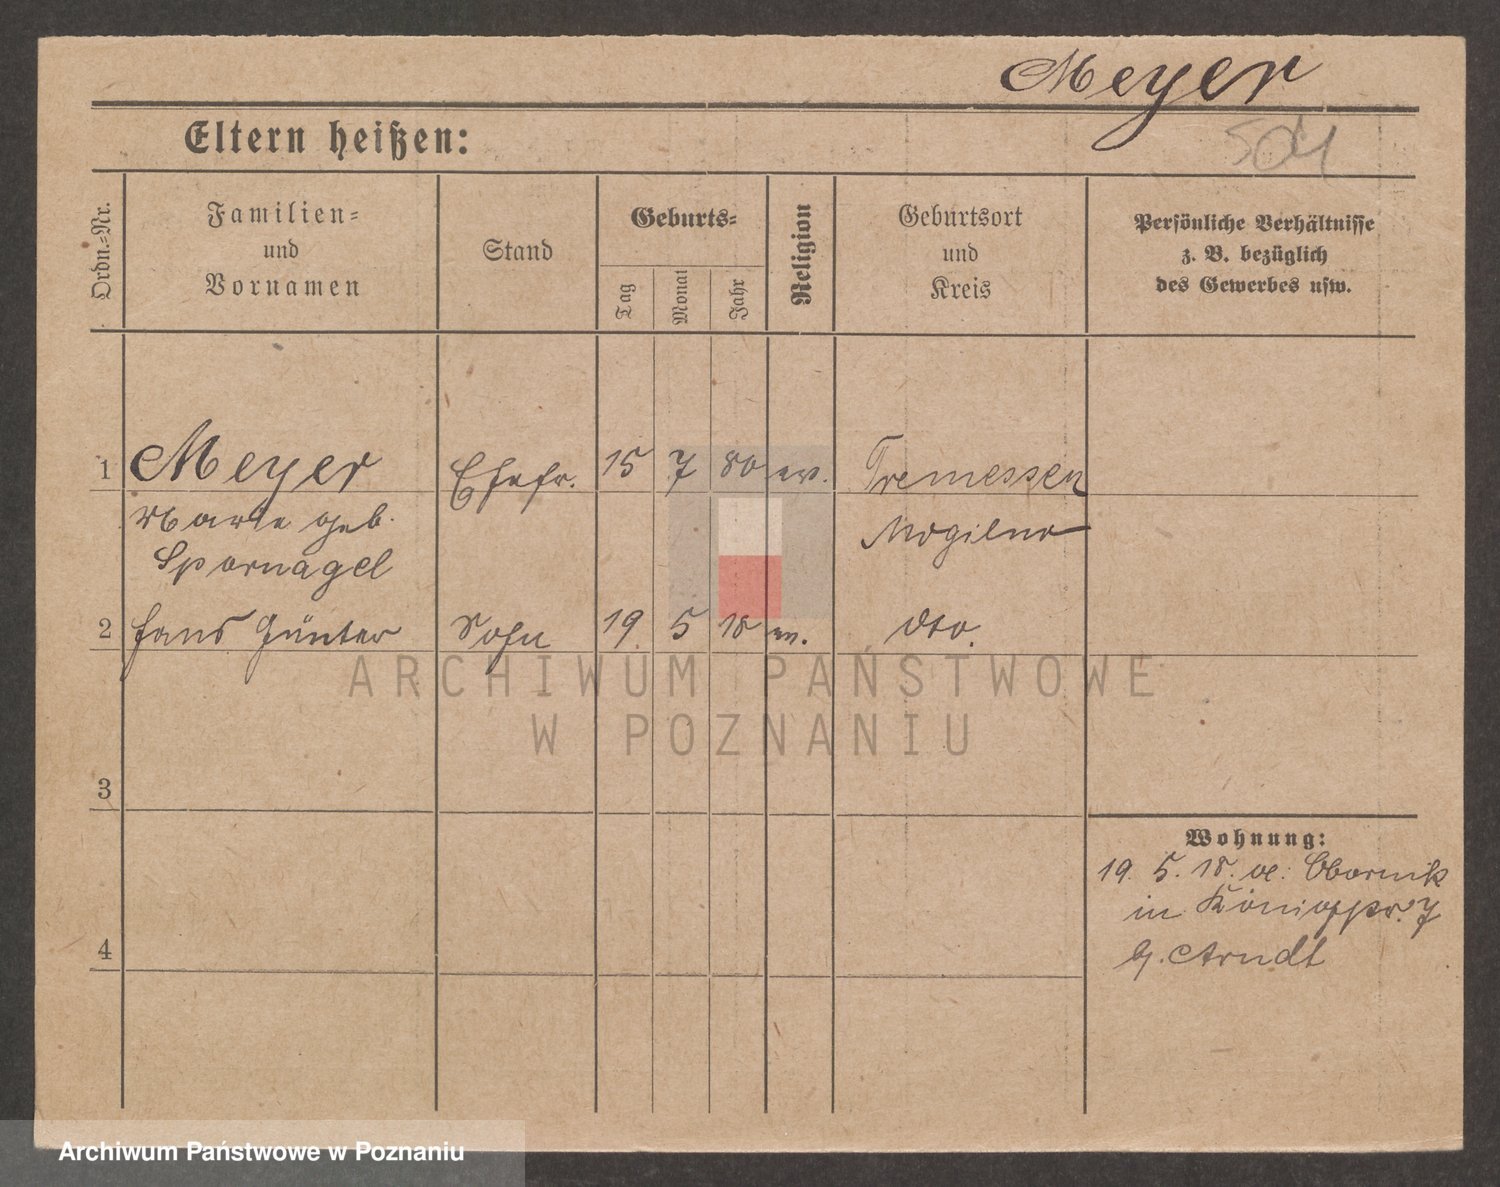 Meyer
504
Eltern heißen:
Ordn.-Nr.
Familien-
und
Vornamen
Stand
Geburts-
Tag
Monat
Jahr
Religion
Geburtsort
und
Kreis
Persönliche Verhältnisse
z. B. bezüglich
des Gewerbes usw.
1 Meyer Ehefr. 15 7 80 ev. Tremessen
Marie geb. Mogilno
Spornagel
2 Hans Günter Sohn 19 5 18 ev. dto.
3
4
Wohnung:
19. 5. 18. Obornik
in Königspl. 7
b. Arndt
ARCHIWUM PAŃSTWOWE
W POZNANIU
Archiwum Państwowe w Poznaniu